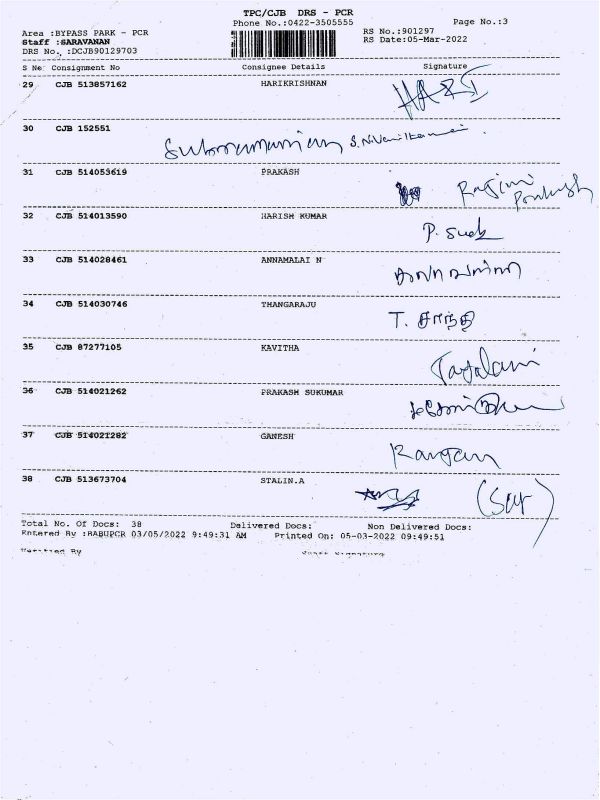 TPC/CJB DRS - PCR
Phone No.:0422-3505555
Page No.:3
Area :BYPASS PARK - PCR
RS No.:901297
Staff :SARAVANAN
RS Date:05-Mar-2022
DRS No. :DCJB90129703
S No Consignment No Consignee Details Signature
29 CJB 513857162 HARIKRISHNAN
30 CJB 152551
Subramanian
31 CJB 514053619 PRAKASH Ragini
Prakash
32 CJB 514013590 HARISH KUMAR
33 CJB 514028461 ANNAMALAI N
34 CJB 514030746 THANGARAJU T. சாந்தி
35 CJB 87277105 KAVITHA
36 CJB 514021262 PRAKASH SUKUMAR
37 CJB 514021282 GANESH
38 CJB 513673704 STALIN.A
Total No. Of Docs: 38 Delivered Docs: Non Delivered Docs:
Entered By :BABUPCR 03/05/2022 9:49:31 AM Printed On: 05-03-2022 09:49:51